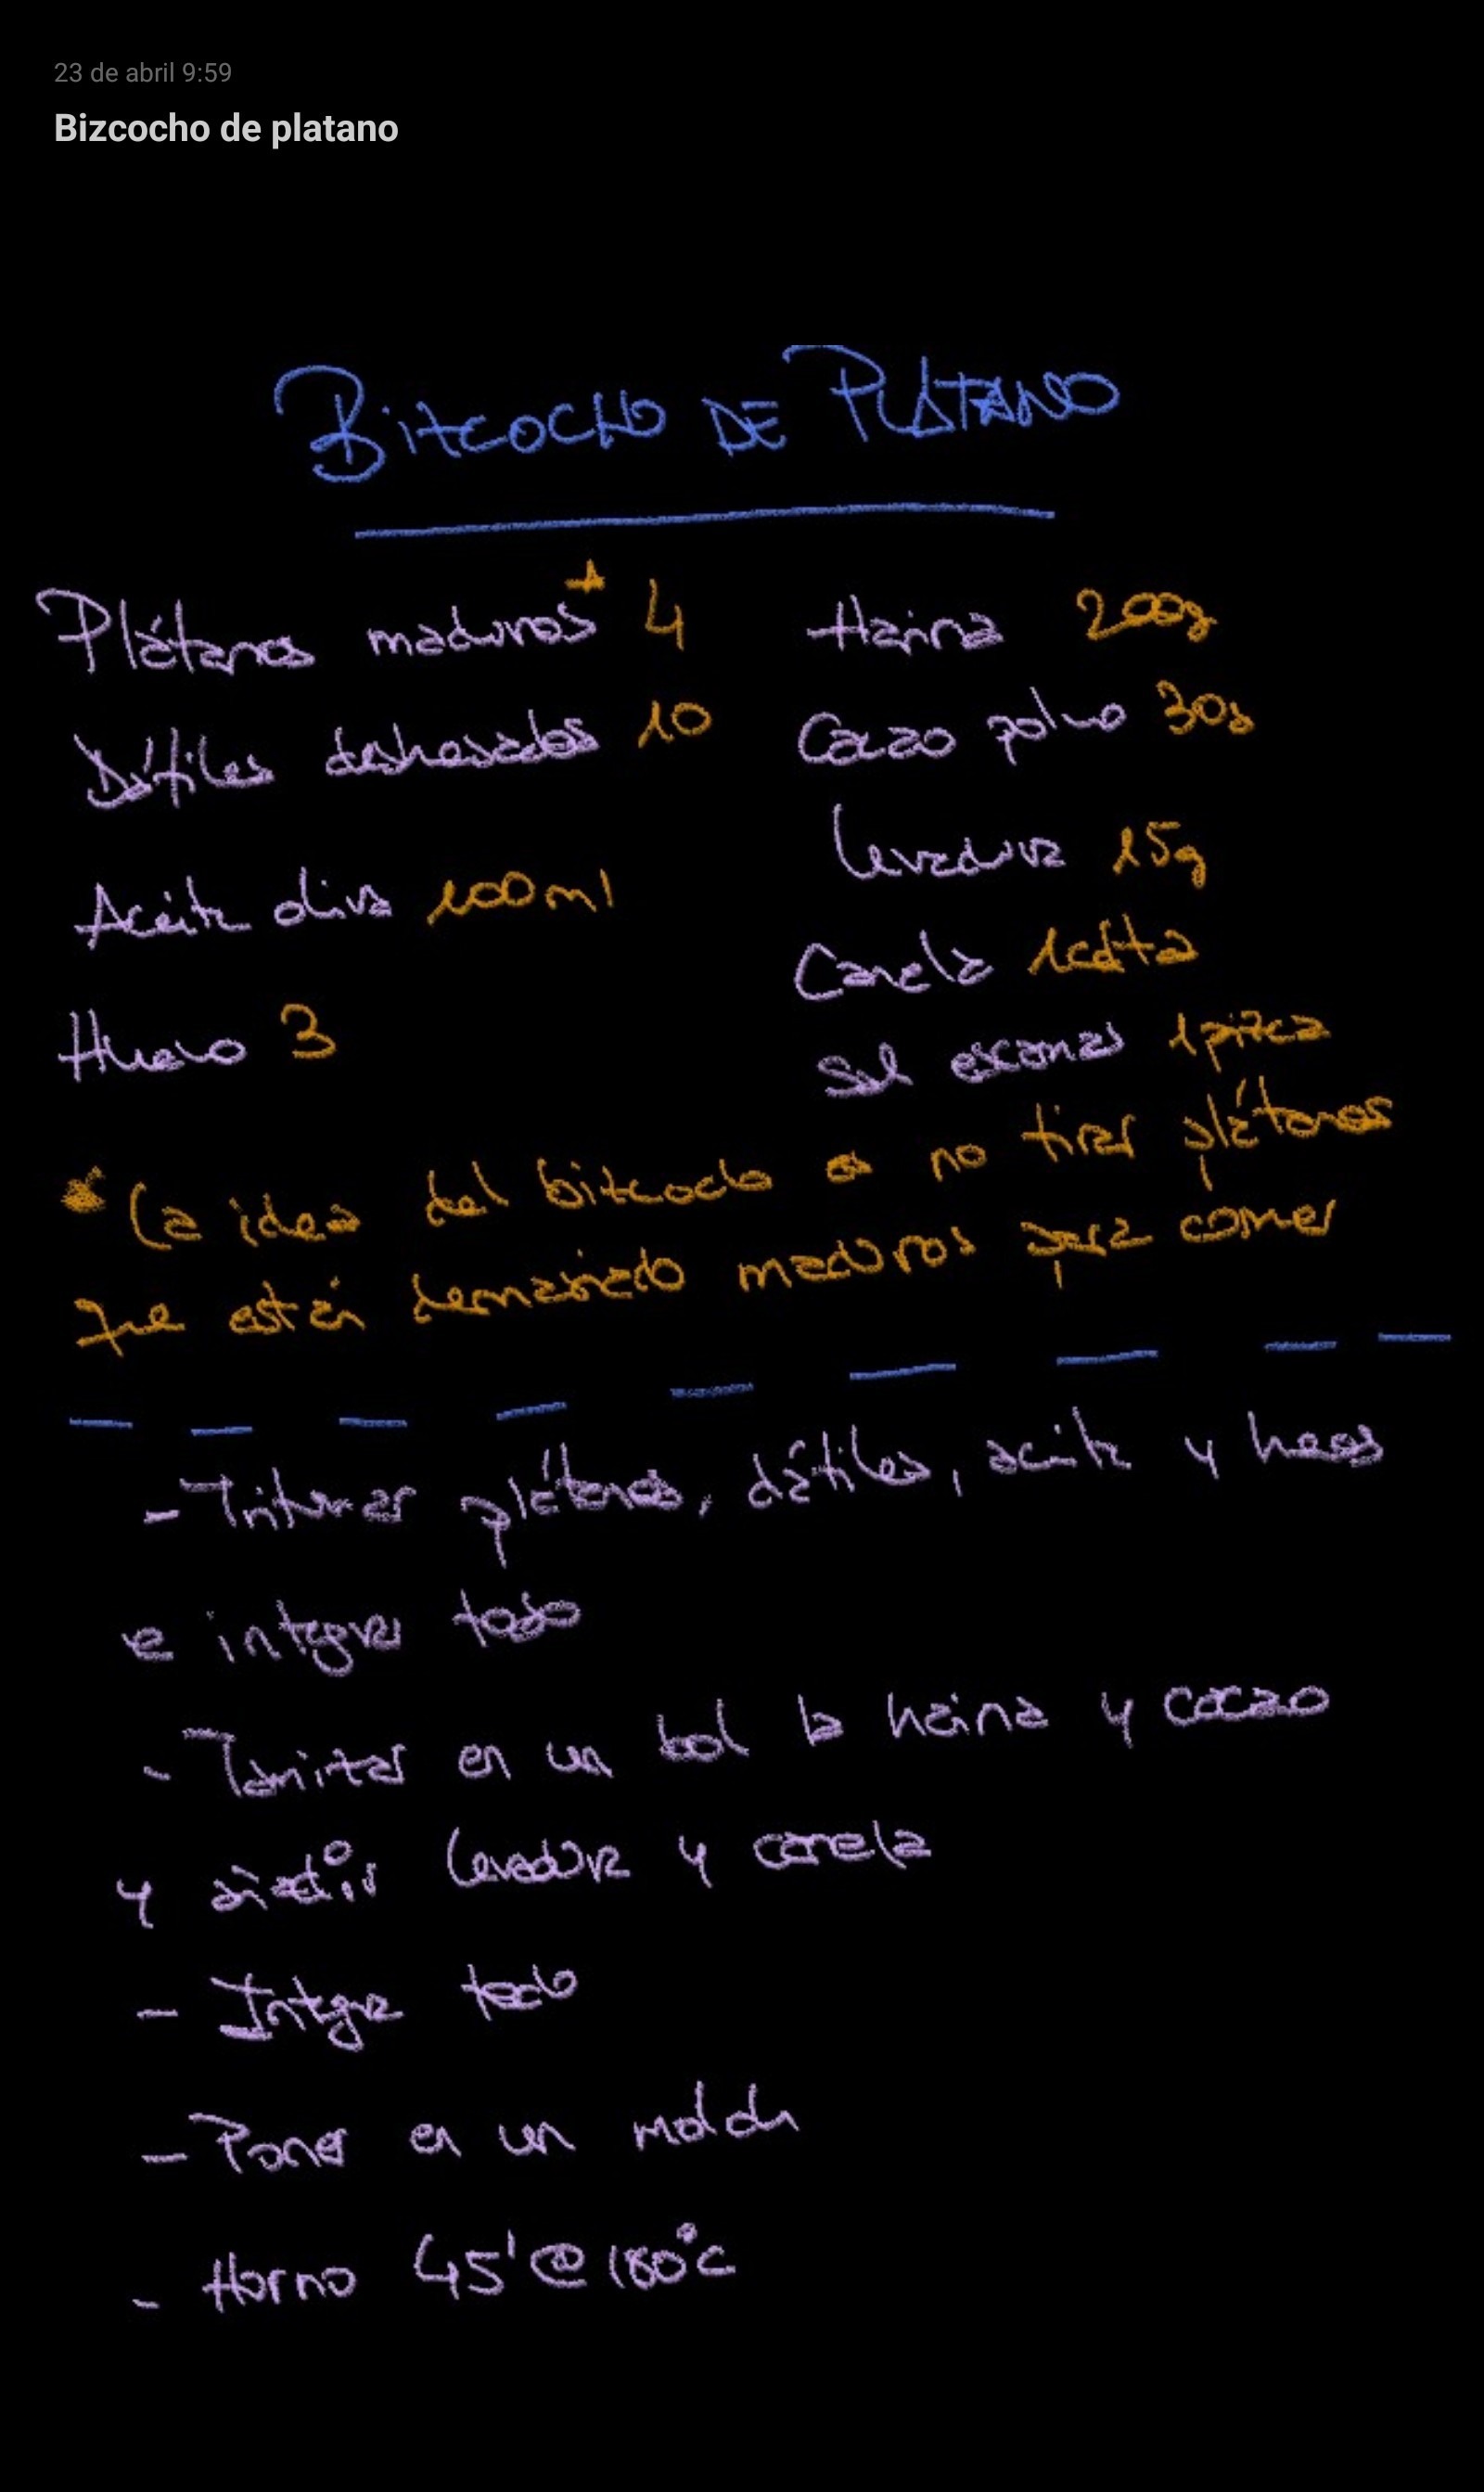 23 de abril 9:59
Bizcocho de platano
BizcocHo DE PLATANO
Plátanos maduros* 4
Dátiles deshuesados 10
Aceite oliva 100ml
Huevo 3
Harina 200g
Cacao polvo 30g
Levadura 15g
Canela 1cdta
Sal escamas 1 pizca
* La idea del bizcocho es no tirar plátanos
que están demasiado maduros para comer
- Triturar plátanos, dátiles, aceite y huevos
e integrar todo
- Tamizar en un bol la harina y cacao
y añadir levadura y canela
- Integrar todo
- Poner en un molde
- Horno 45' @ 180°C